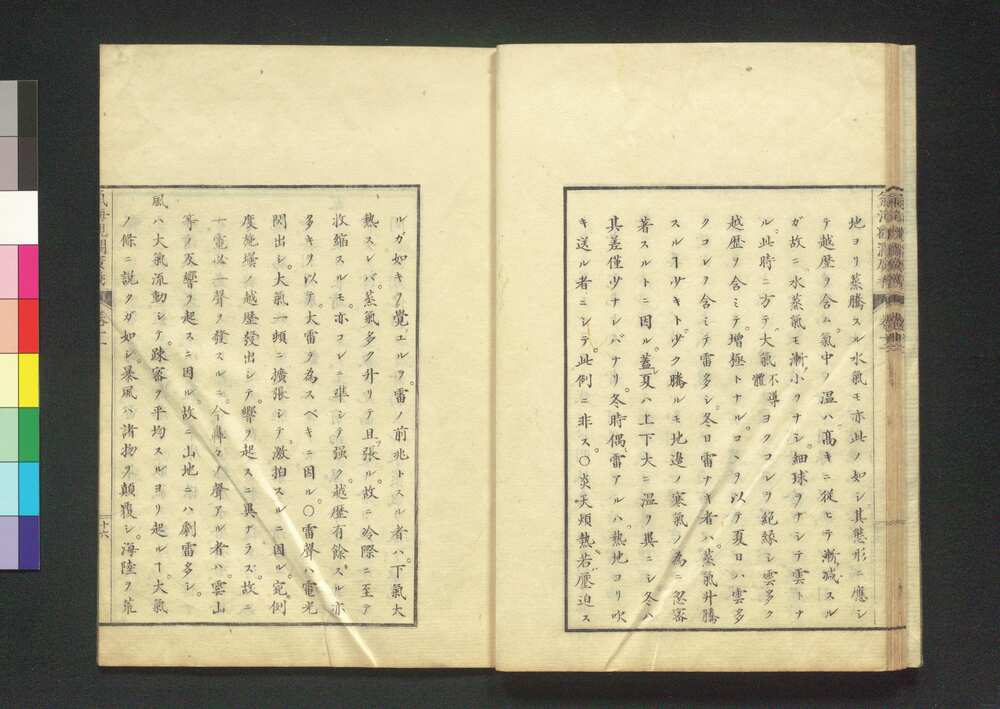 地ヨリ蒸騰スル水氣モ亦此ノ如シ其態形ニ應シ
テ越歴ヲ含ム。氣中ノ温ハ高キニ従ヒテ漸減スル
ガ故ニ水蒸氣モ漸小ヲナシ。細球ヲナシテ雲トナ
ル。此時ニ方テ。大氣不導體ヨクコレヲ絶縁シ雲多ク
越歴ヲ含ミテ。增極トナル。コヽヲ以テ夏日ハ雲多
クコレヲ含ミテ雷多シ。冬日雷ナキ者ハ。蒸氣升騰
スルヿ少キト。少ク騰ルモ地邊ノ寒氣ノ為ニ忽審
著スルトニ因ル。蓋夏ハ上下大ニ温ヲ異ニシ冬ハ
其差僅少ナレバナリ。冬時偶雷アルハ。熱地ヨリ吹
キ送ル者ニシテ。此例ニ非ス。〇炎天頻熱若壓迫ス
ルガ如キヲ覺エルヲ。雷ノ前兆トスル者ハ。下氣大
熱スレバ。蒸氣多ク升リテ且張ル。故ニ冷際ニ至テ
收縮スルモ。亦コレニ準シテ强ク。越歴有餘スル亦
多キヲ以テ。大雷ヲ為スベキニ因ル。〇雷聲ハ。電光
閃出シ。大氣一頓ニ擴張シテ。激拍スルニ因ル。宛例
度絁壜ノ越歴發出シテ。響ヲ起スニ異ナラズ。故ニ
一電必一聲ヲ發スルニ。今轟々ノ聲アル者ハ。雲山
等ノ反響ヲ起スニ因ル。故ニ山地ニハ劇雷多シ。
風ハ大氣流動シテ。踈審ヲ平均スルヨリ起ルヿ大氣
ノ條ニ説クガ如シ暴風ハ諸物ヲ顛覆シ。海陸ヲ荒
十六